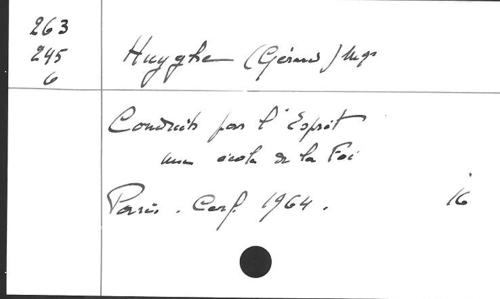 263
245
6
Huyghe (Gérard) Mgr
Conduits par l'Esprit
une école de la Foi
Paris. Cerf. 1964.
16